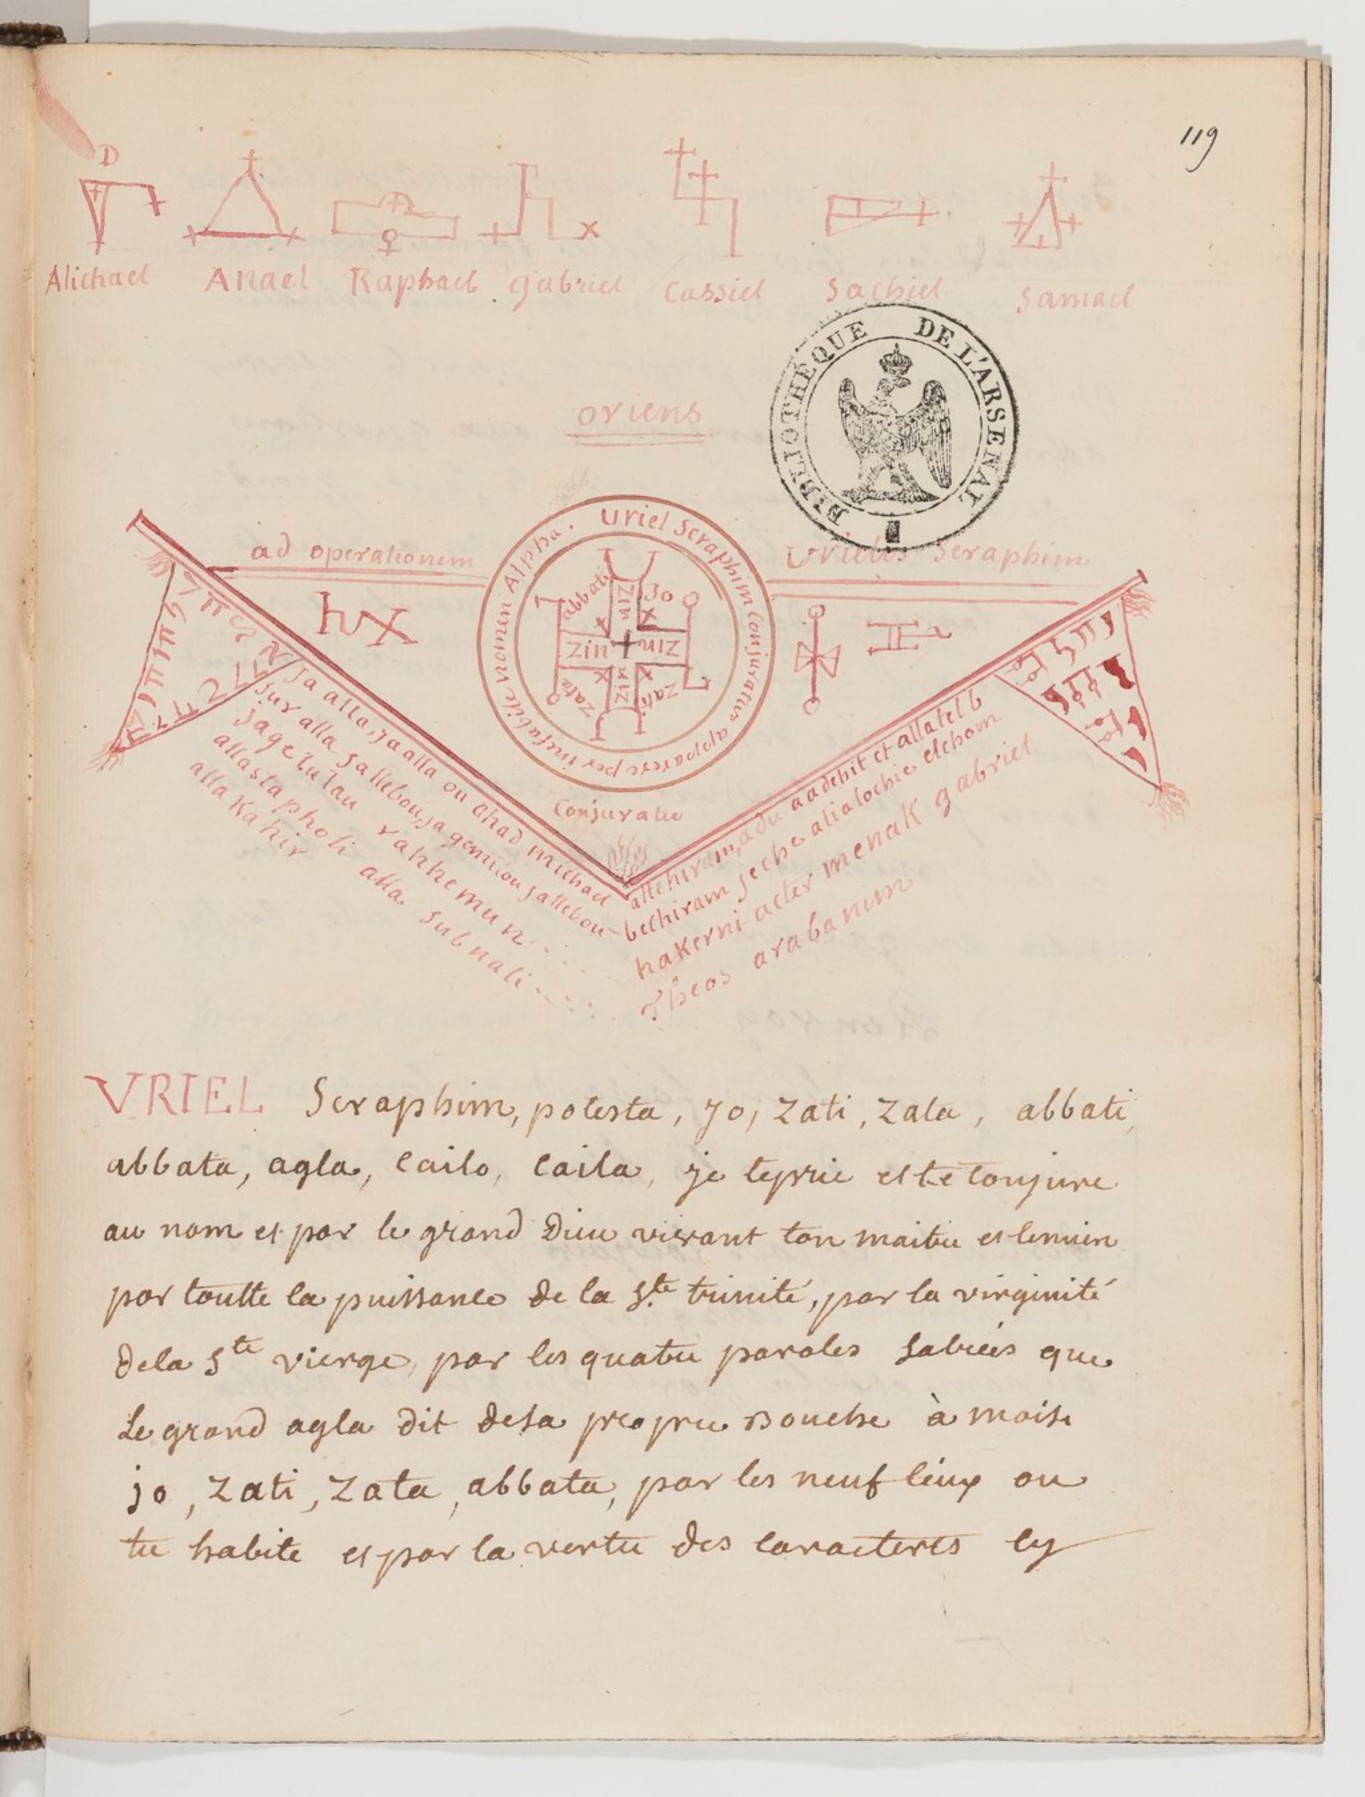 119
D
Alichael Anael Raphael gabriel cassiel sachiel samael
BIBLIOTHÈQUE DE L'ARSENAL
oriens
ad operationem
Seraphim
Uriel Seraphim Conjuratus apparere per inefabile nomen Alpha.
abbati
zin
jo
zin
zin
zata
zin
zati
Conjuratio
ja allo, ja alla ou ahad michael
sur alla jallebou, ja gemiou jallebou
jagezulau rahhemun
allastapholi alla subnali
alla Kahir
allehiram, adu aadehit et allatel b
bechiram jeche alialochie elchom
hakerni acter menak gabriel
Theos arabanim
VRIEL Seraphim, potesta, jo, zati, zata, abbati,
abbata, agla, cailo, caila, je te prie et te conjure
au nom et par le grand Dieu vivant ton maitre et le mien
par toutte la puissance de la Ste trinité, par la virginité
de la Ste vierge, par les quatre paroles sabrées que
Le grand agla dit de sa propre Bouche à moise
jo, zati, zata, abbata, par les neuf lieux ou
tu habite et par la vertu des caracteres cy